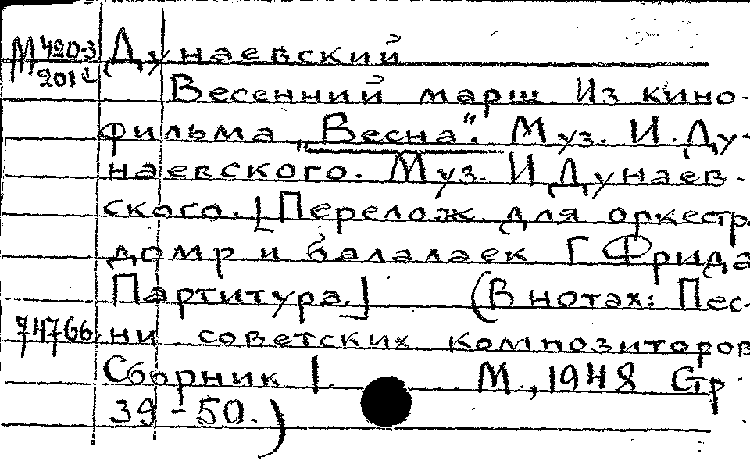 М 420-3 Дунаевский
201
Весенний марш. Из кино-
фильма „Весна“. Муз. И. Ду-
наевского. Муз. И Дунаев-
ского. [Перелож. для оркестр.
домр и балалаек Г. Фрида
Партитура.] (В нотах: Пес-
74766 ни советских композиторов
Сборник 1. М., 1948 Стр.
39-50.)